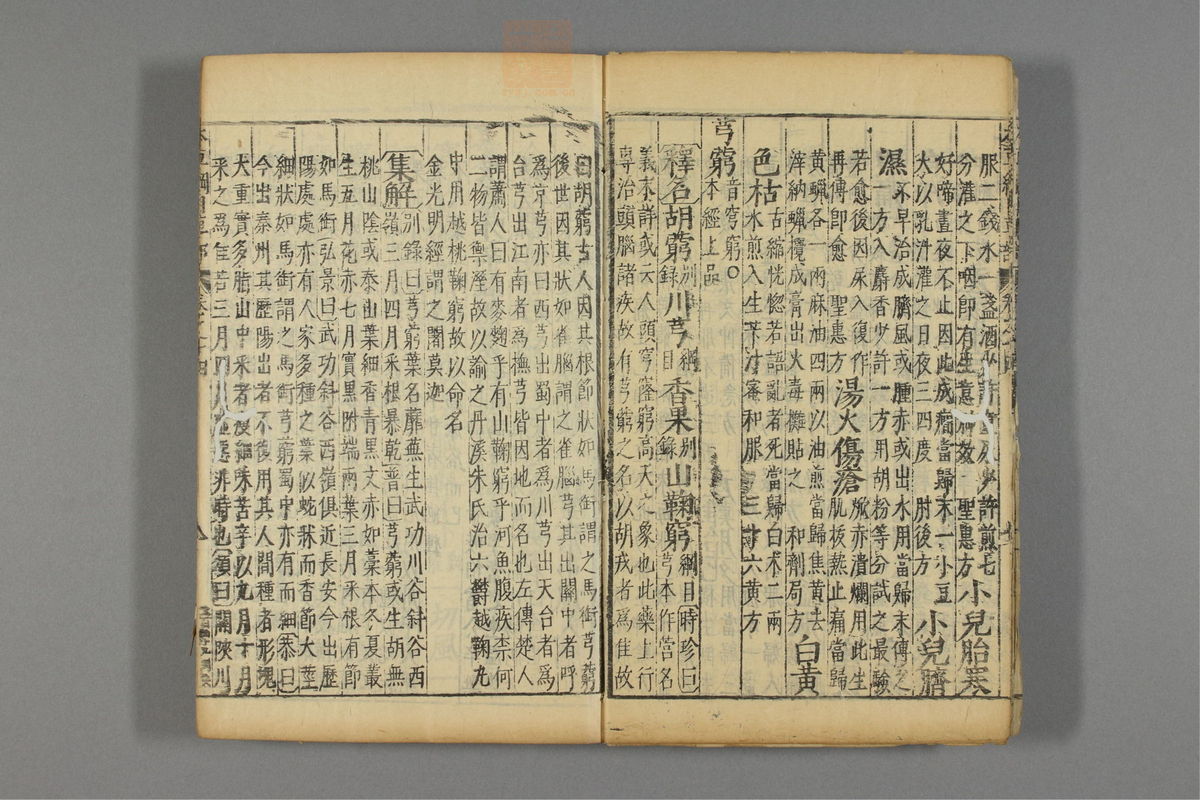 服二錢水一盞酒
分灌之下咽即有生意 聖惠方 小兒胎寒
好啼晝夜不止因此成癎當歸末一小豆
大以乳汁灌之日夜三四度 肘後方 小兒臍
濕 不早治成臍風或腫赤或出水用當歸末傅之
一方入麝香少許一方用胡粉等分試之最驗
若愈後因尿入復作
再傅即愈 聖惠方 湯火傷瘡 焮赤潰爛用此生
肌拔熱止痛當歸
黃蠟各一兩麻油四兩以油煎當歸焦黃去
滓納蠟攪成膏出火毒攤貼之 和劑局方 白黃
色枯 舌縮恍惚若語亂者死當歸白朮二兩
水煎入生苄汁蜜和服 三十六黃方
芎藭 音穹窮○
本經上品
釋名胡藭别錄川芎綱目香果别錄山鞠藭綱目時珍曰芎本作营名
義未詳或云人頭穹窿窮高天之象也此藥上行
專治頭腦諸疾故有芎藭之名以胡戎者爲佳故
曰胡藭古人因其根節狀如馬銜謂之馬銜芎藭
後世因其狀如雀腦謂之雀腦芎其出關中者呼
爲京芎亦曰西芎出蜀中者爲川芎出天台者爲
台芎出江南者爲撫芎皆因地而名也左傳楚人
謂蕭人曰有麥麴乎有山鞠窮乎河魚腹疾柰何
二物皆禦濕故以諭之丹溪朱氏治六鬱越鞠丸
中用越桃鞠窮故以命名
金光明經謂之闍莫迦
集解别錄曰芎藭葉名蘼蕪生武功川谷斜谷西
嶺三月四月采根暴乾普曰芎藭或生胡無
桃山陰或泰山葉細香青黑文赤如藁本冬夏叢
生五月花赤七月實黑附端兩葉三月采根有節
如馬銜弘景曰武功斜谷西嶺俱近長安今出歷
陽處處亦有人家多種之葉似蛇牀而香節大莖
細狀如馬銜謂之馬銜芎藭蜀中亦有而細恭曰
今出秦州其歷陽出者不復用其人間種者形塊
大重實多脂山中采者瘦細味苦辛以九月十月
采之爲佳若三月四月虛惡非時也頌曰關陝川